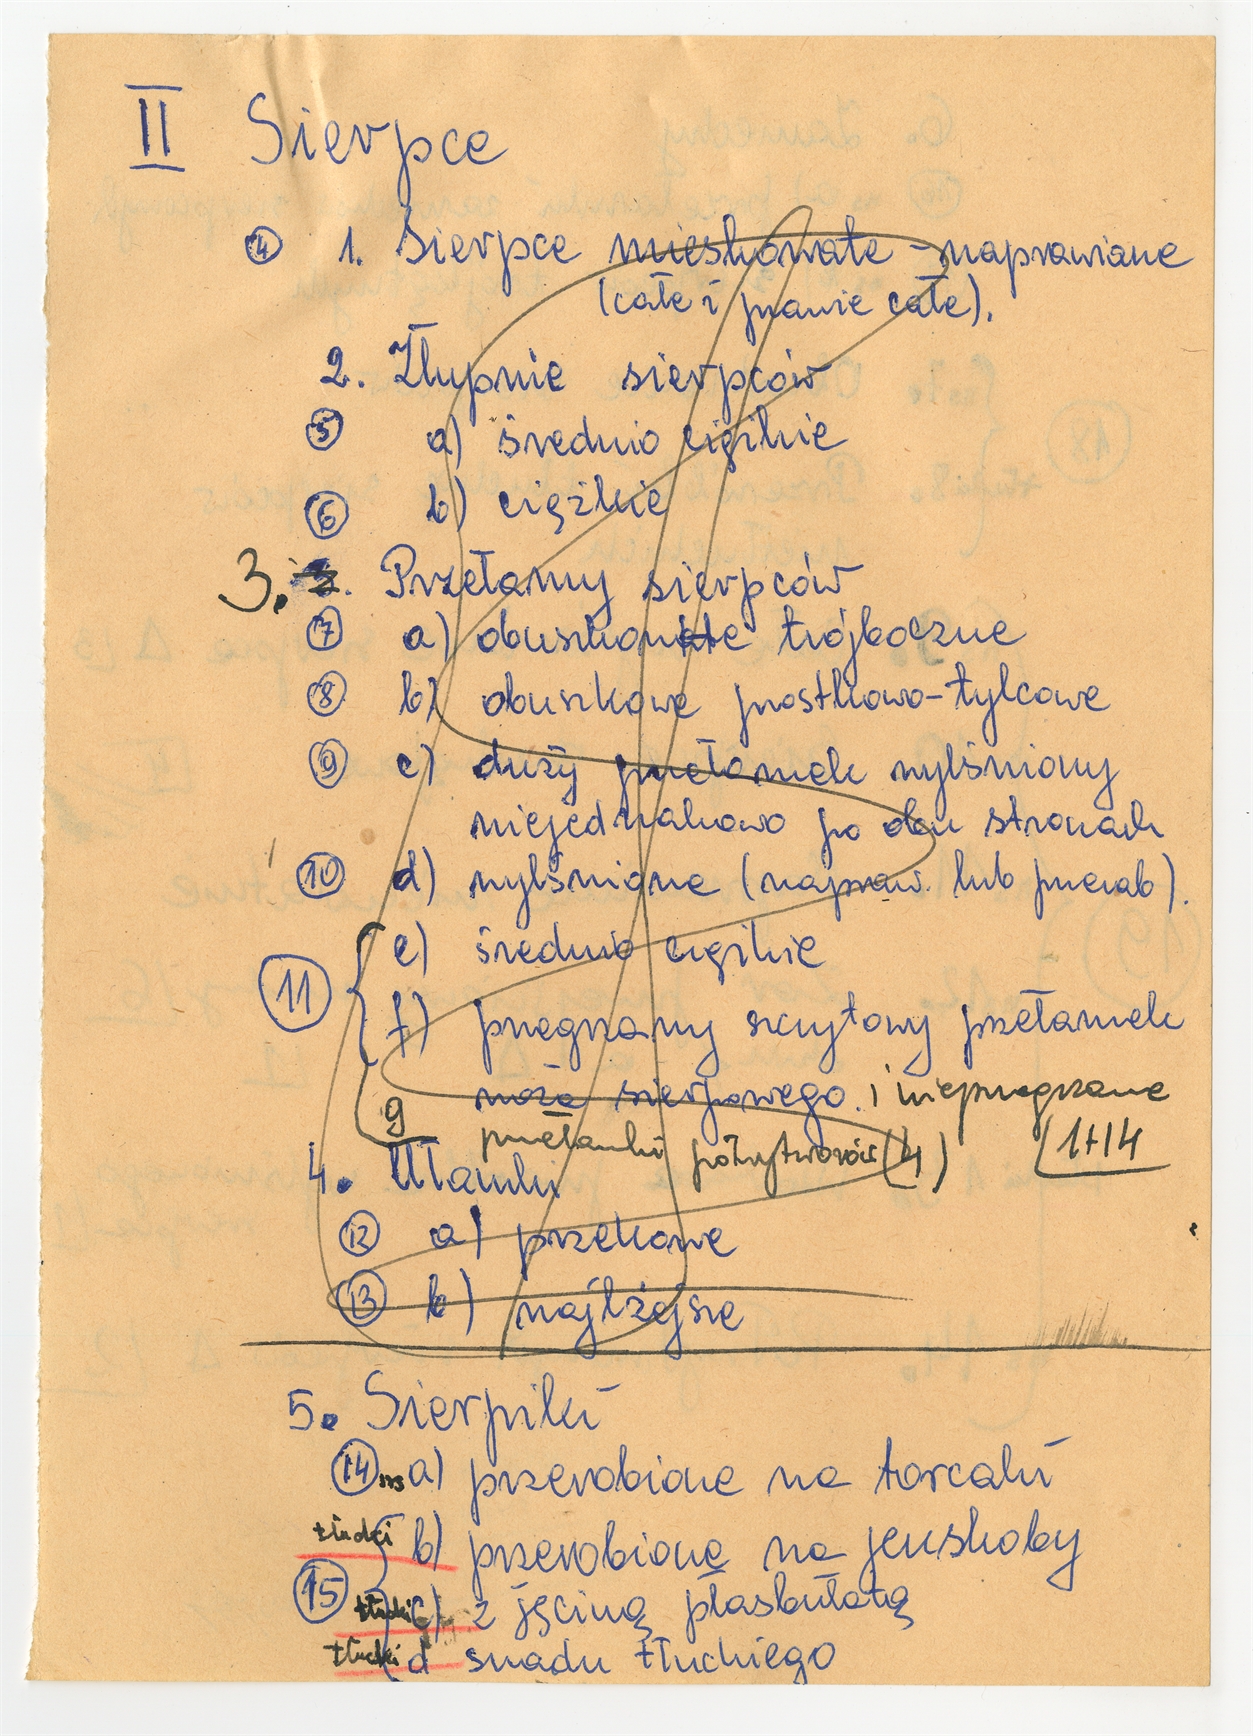 II Sierpce
④ 1. Sierpce mieszkowate – naprawiane
(całe i prawie całe).
2. Złupnie sierpców
⑤ a) średnio ciężkie
⑥ b) ciężkie
3. Przełamy sierpców
⑦ a) obuszkowe trójboczne
⑧ b) obuszkowe prostkowo-tylcowe
⑨ c) duży przełamek wylśniony
niejednakowo po obu stronach
⑩ d) wylśnione (napraw. lub przerab).
e) średnio ciężkie
⑪ f) przegrzany szczytowy przełamek
noża sierpowego. i nieprzegrzane
g przełamki półwytworów (4) 1+14
4. Ułamki
⑫ a) przekowe
⑬ b) najlżejsze
5. Sierpiki
⑭ a) przerobione na torcaki
tłuczki b) przerobione na
⑮ tłuczki c) z jęciną płaskułatą
tłuczki d snadu tłuckiego